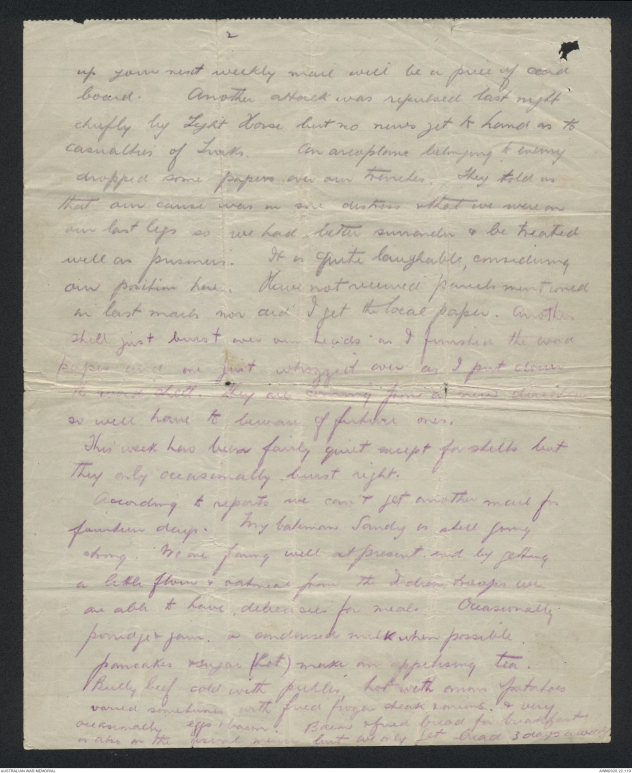 2
up your next weekly mail will be a piece of card
board. Another attack was repulsed last night
chiefly by Light Horse but no news yet to hand as to
casualties of Turks. An aeroplane belonging to enemy
dropped some papers over our trenches. They told us
that our cause was in sore distress & that we were on
our last legs so we had better surrender & be treated
well as prisoners. It is quite laughable, considering
our position here. Have not received parcels mentioned
in last mails nor did I get the local paper. Another
shell just burst over our heads as I finished the word
paper and one just whizzed over as I put down
the word shell. They are coming from a new direction
so will have to beware of future ones.
This week has been fairly quiet except for shells but
they only occasionally burst right.
According to reports we can't get another mail for
fourteen days. My batman Sandy is still going
strong. We are faring well at present and by getting
a little flour & oatmeal from the Indian troops we
are able to have delicacies for meals. Occasionally
porridge & jam or condensed milk when possible.
pancakes & sugar (hot) make an appetising tea.
Bully beef cold with pickles, hot with onions & potatoes
varied sometimes with fried frozen steak & onions, & very
occasionally eggs & bacon. Bacon & fried bread for breakfast
is also on the usual menu but we only get bread 3 days a week
AUSTRALIAN WAR MEMORIAL